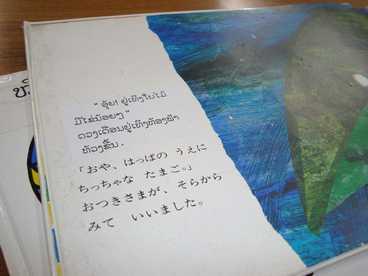 “ອຸ໊ຍ! ຢູ່ເທິງໃບໄມ້
ມີໄຂ່ນ້ອຍໆ”
ດວງເດືອນຢູ່ເທິງທ້ອງຟ້າ
ທ້ວງຂຶ້ນ.
「おや、はっぱの うえに
ちっちゃな たまご。」
おつきさまが、そらから
みて いいました。